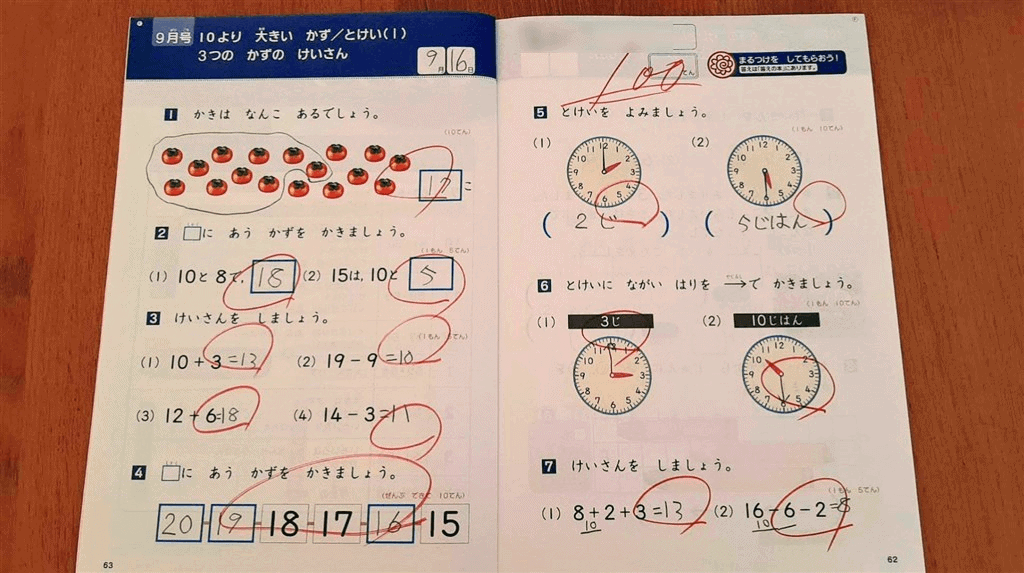 9月号 10より 大きい かず/とけい(1)
3つの かずの けいさん
9月16日
1 かきは なんこ あるでしょう。
(10てん)
17こ
2 □に あう かずを かきましょう。
(1もん 5てん)
(1) 10と 8で、18 (2) 15は、10と 5
3 けいさんを しましょう。
(1もん 5てん)
(1) 10+3=13 (2) 19-9=10
(3) 12+6=18 (4) 14-3=11
4 □に あう かずを かきましょう。
(ぜんぶ できて 10てん)
20-19-18-17-16-15
63
100てん
まるつけを してもらおう!
答えは「答えの本」にあります。
5 とけいを よみましょう。
(1もん 10てん)
(1) (2)
(2じ) (5じはん)
6 とけいに ながい はりを →で かきましょう。
(1もん 10てん)
(1) 3じ (2) 10じはん
7 けいさんを しましょう。
(1もん 5てん)
(1) 8+2+3=13 (2) 16-6-2=8
10 10
62